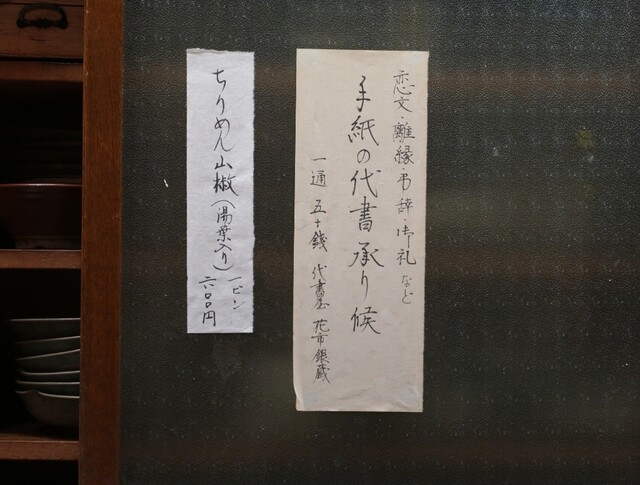 恋文・離縁・弔辞・御礼など
手紙の代書承り候
一通 五十銭 代書屋 花市銀蔵
ちりめん山椒(湯葉入り)
一ビン
六〇〇円